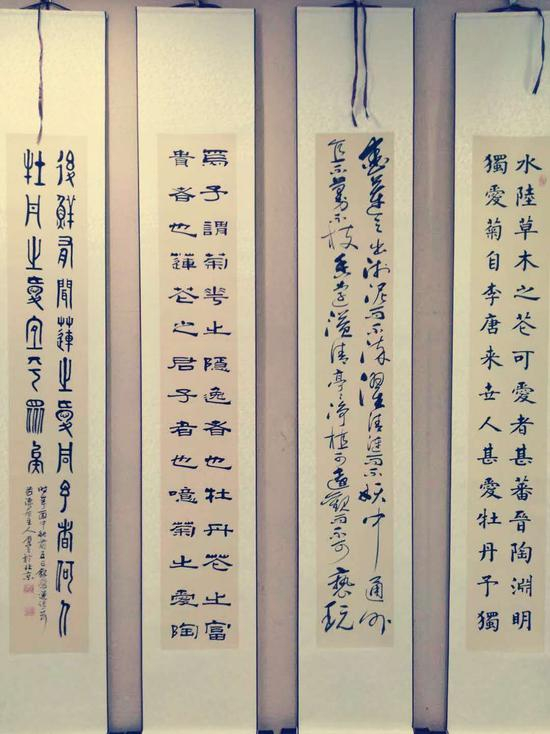 水陸草木之花可愛者甚蕃晉陶淵明
獨愛菊自李唐来世人甚愛牡丹予獨
愛蓮之出淤泥而不染濯清漣而不妖中通外
直不蔓不枝香遠溢清亭亭净植可遠觀而不可褻玩
焉予謂菊華之隱逸者也牡丹花之富
貴者也蓮花之君子者也噫菊之愛陶
後鮮有聞蓮之愛同予者何人
牡丹之愛宜乎眾矣
酉中秋前五日
主人於北京